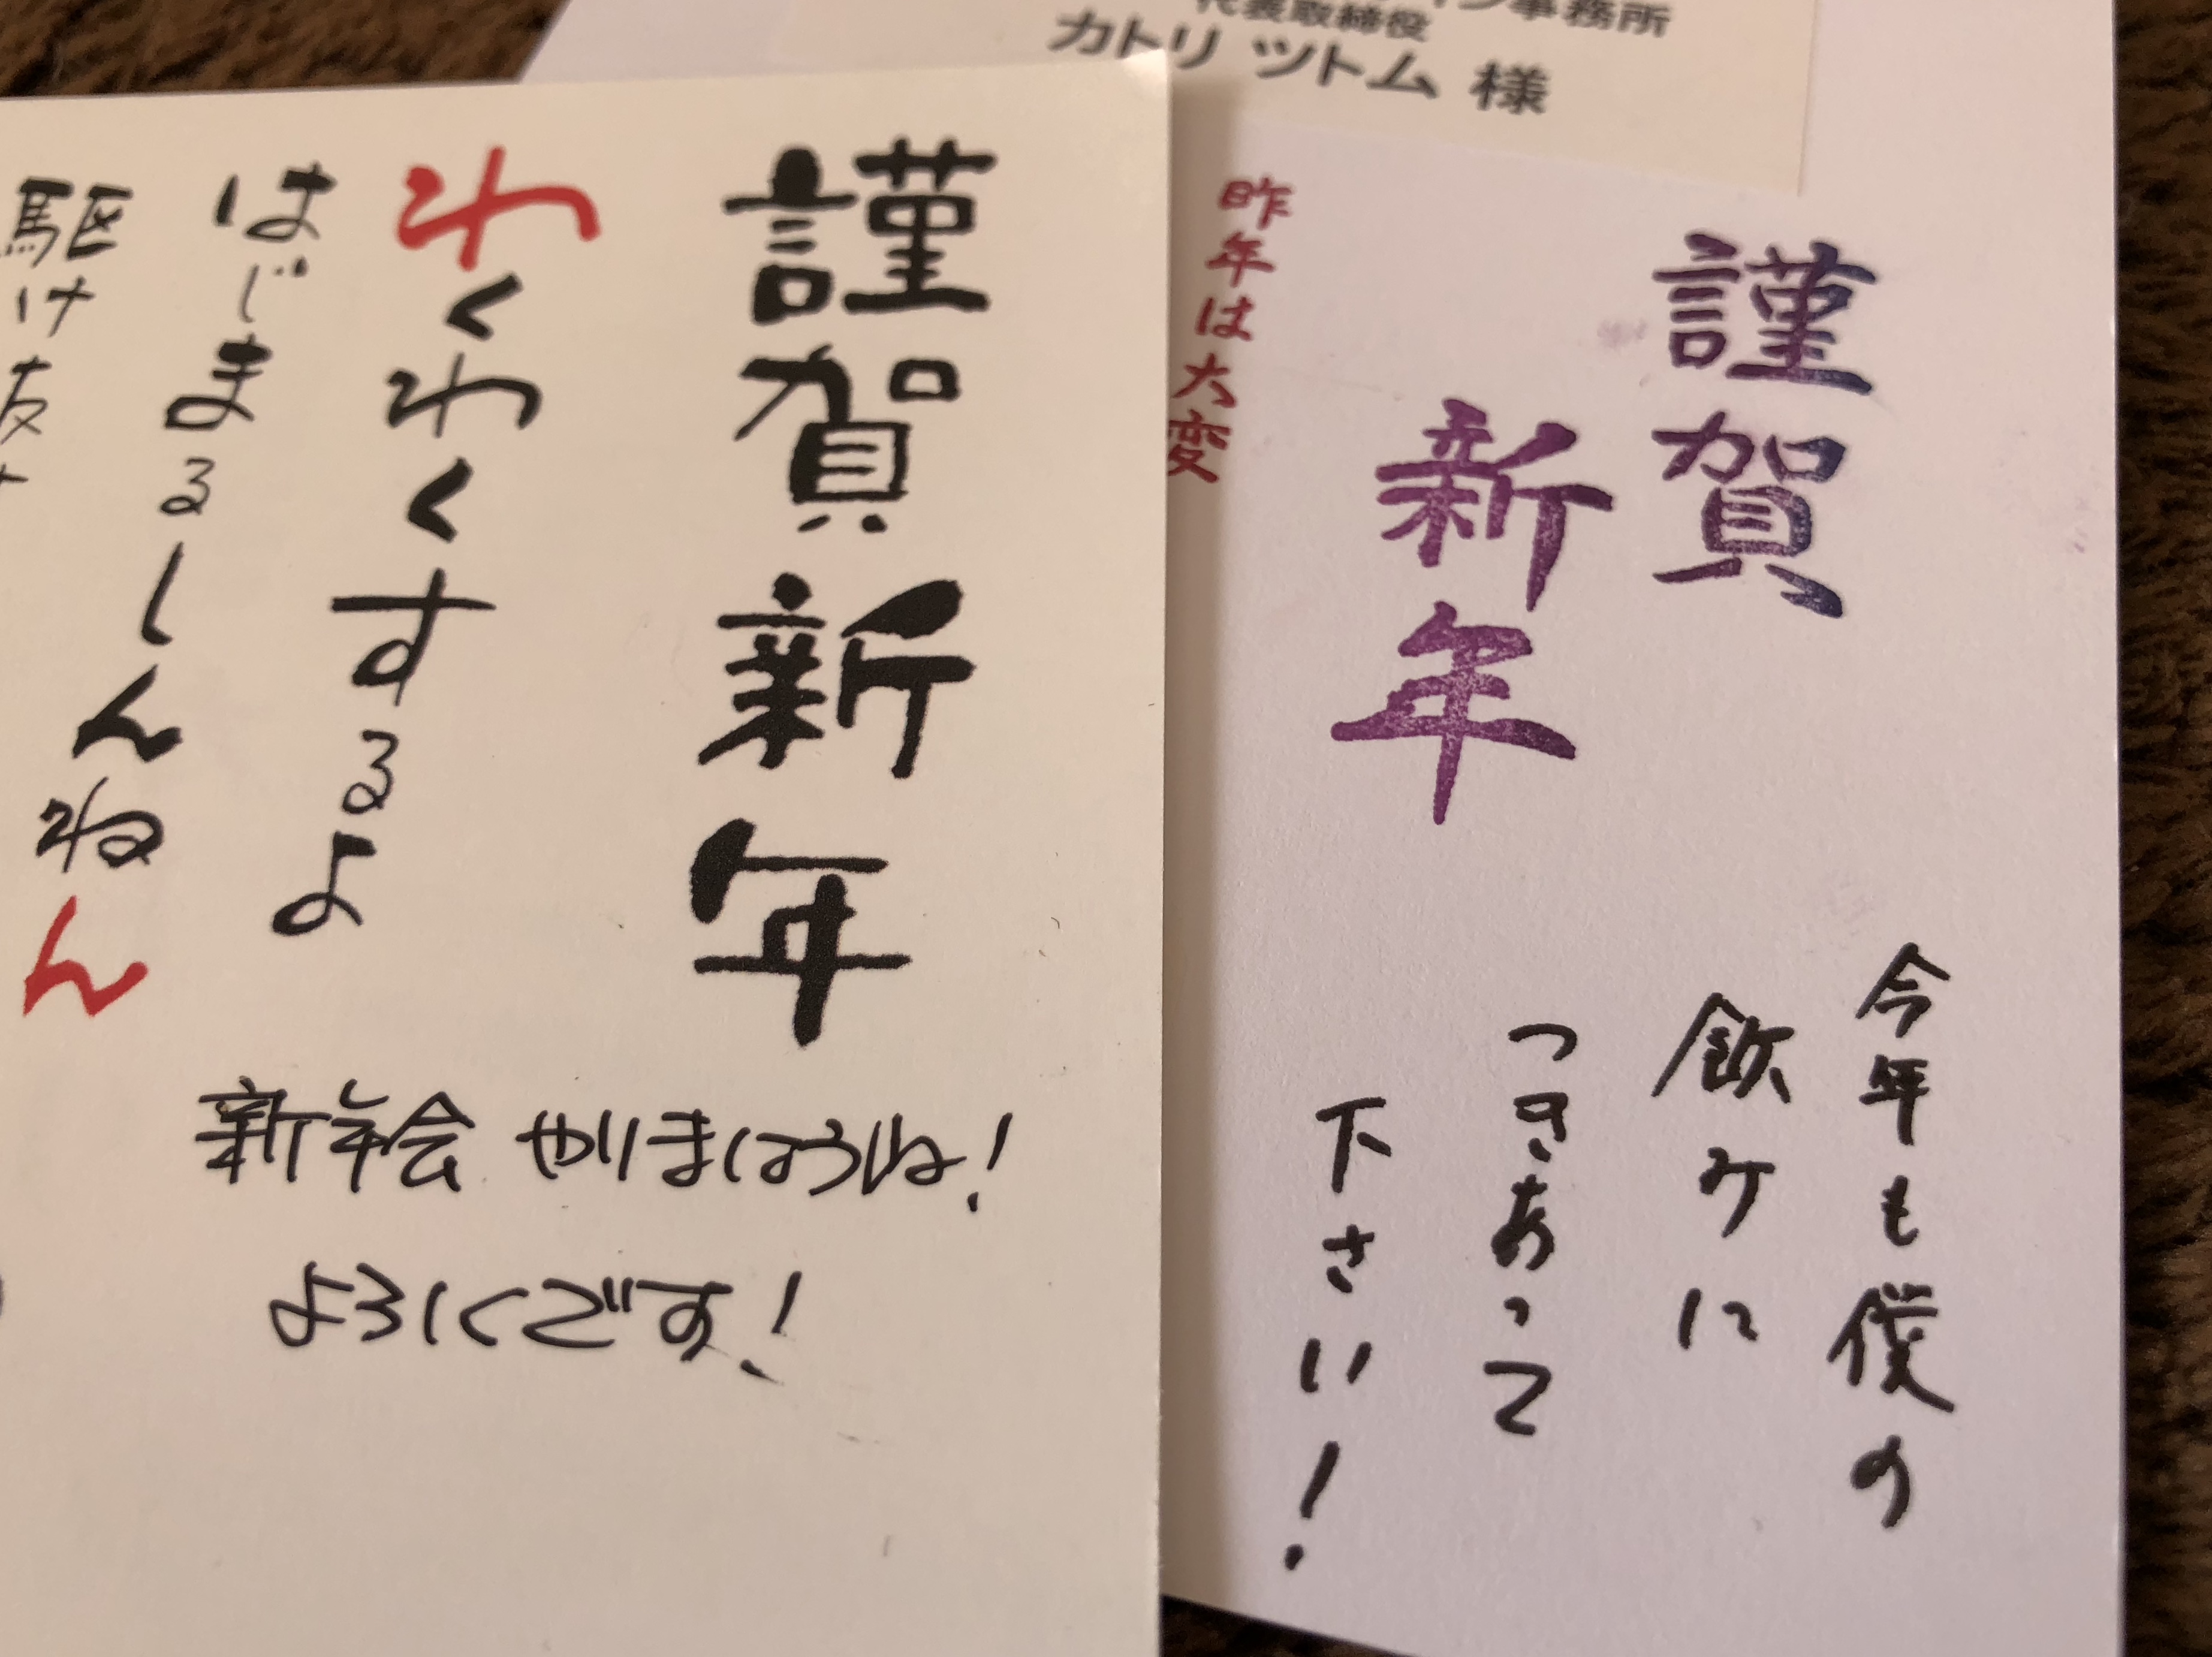 事務所
代表取締役
カトリ ツトム 様
謹賀
新年
昨年は大変
今年も僕の
飲みに
つきあって
下さい!
謹賀新年
わくわくするよ
はじまるしんねん
駆け抜
新年会 やりましょうね!
よろしくです!